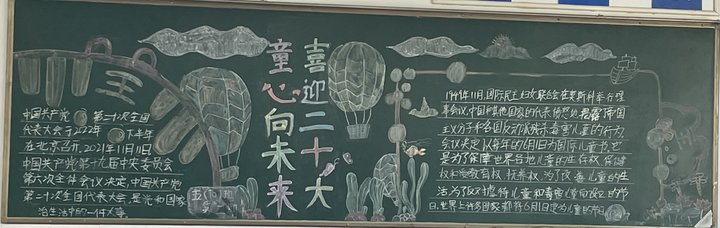 中国共产党 第二十次全国
代表大会于2022年 下半年
在北京召开,2021年11月11日
中国共产党第十九届中央委员会
第六次全体会议决定,中国共产党
第二十次全国代表大会,是党和国家
治生活中的一件大事
喜迎二十大
童心向未来
1949年11月,国际民主妇女联合会在莫斯科举行理
事会议,中国和其他国家的代表愤怒地揭露帝国
主义分子和各国反动派杀害毒害儿童的行为
会议决定以每年的6月1日为国际儿童节它
是为了保障世界各地儿童的生存权保健
权和受教育权 抚养权,为了改善儿童的生
活为了反对虐待儿童和毒害儿童而设立的节
日.世界上许多国家都将6月1日定为儿童的节日